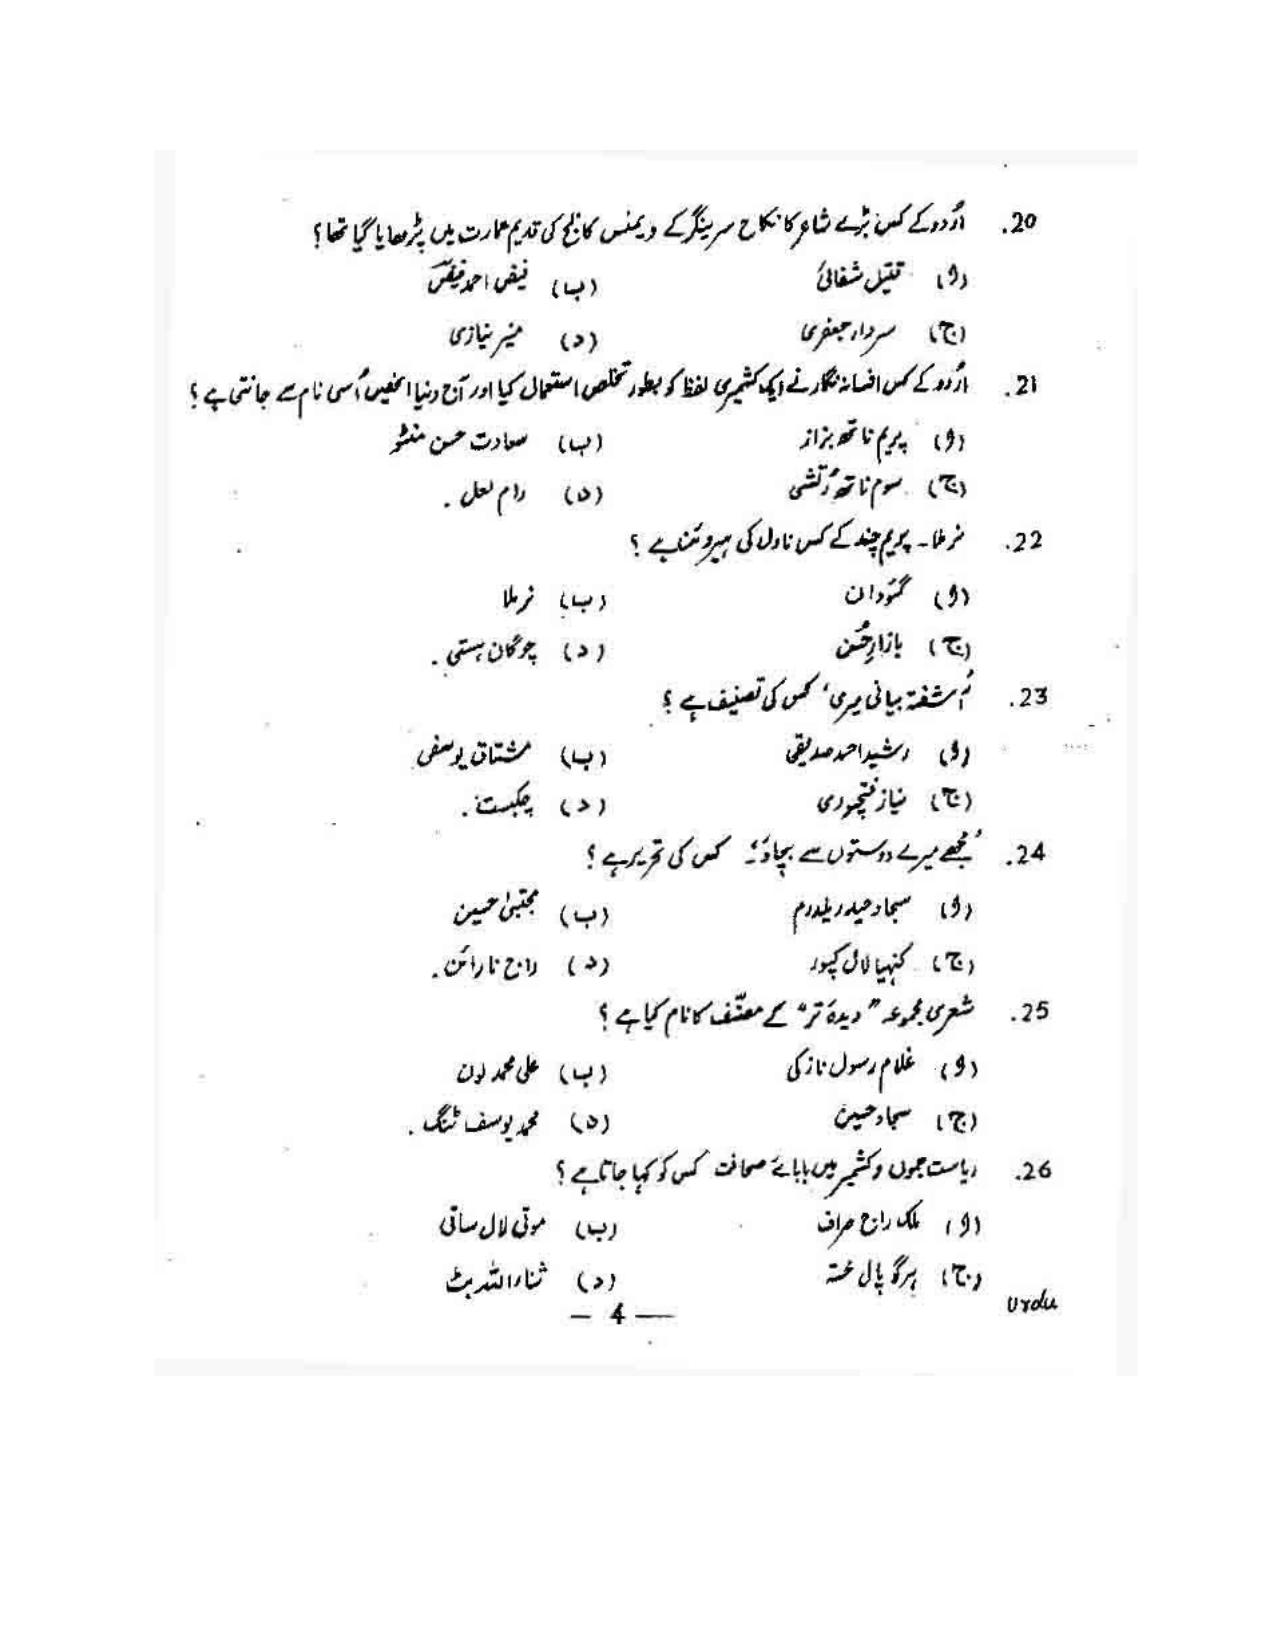 20. اُردو کے کس بڑے شاعر کا نکاح سرینگر کے ویمنس کالج کی قدیم عمارت میں پڑھایا گیا تھا؟
(و) قتیل شفائی (ب) فیض احمد فیضؔ
(ج) سردار جعفری (د) منیر نیازی
21. اُردو کے کس افسانہ نگار نے ایک کشمیری لفظ کو بطور تخلص استعمال کیا اور آج دنیا انھیں اُسی نام سے جانتی ہے؟
(و) پریم ناتھ بزاز (ب) سعادت حسن منٹو
(ج) سوم ناتھ زتشی (د) رام لعل ۔
22. نرملا۔ پریم چند کے کس ناول کی ہیروئن ہے؟
(و) گئودان (ب) نرملا
(ج) بازارِ حُسن (د) چوگان ہستی ۔
23. 'آشفتہ بیانی میری' کس کی تصنیف ہے؟
(و) رشید احمد صدیقی (ب) مشتاق یوسفی
(ج) نیاز فتحپوری (د) چکبست ۔
24. 'مجھے میرے دوستوں سے بچاؤ'۔ کس کی تحریر ہے؟
(و) سجاد حیدر یلدرم (ب) مجتبیٰ حسین
(ج) کنہیا لال کپور (د) راج نارائن ۔
25. شعری مجموعہ "دیدۂ تر" کے مصنّف کا نام کیا ہے؟
(و) غلام رسول نازکی (ب) علی محمد لون
(ج) سجاد حسین (د) محمد یوسف ٹنگ ۔
26. ریاست جموں و کشمیر میں بابائے صحافت کس کو کہا جاتا ہے؟
(و) ملک راج صراف (ب) موتی لال ساقی
(ج) ہرگوپال خستہ (د) ثناء اللہ بٹ
— 4 —
Urdu